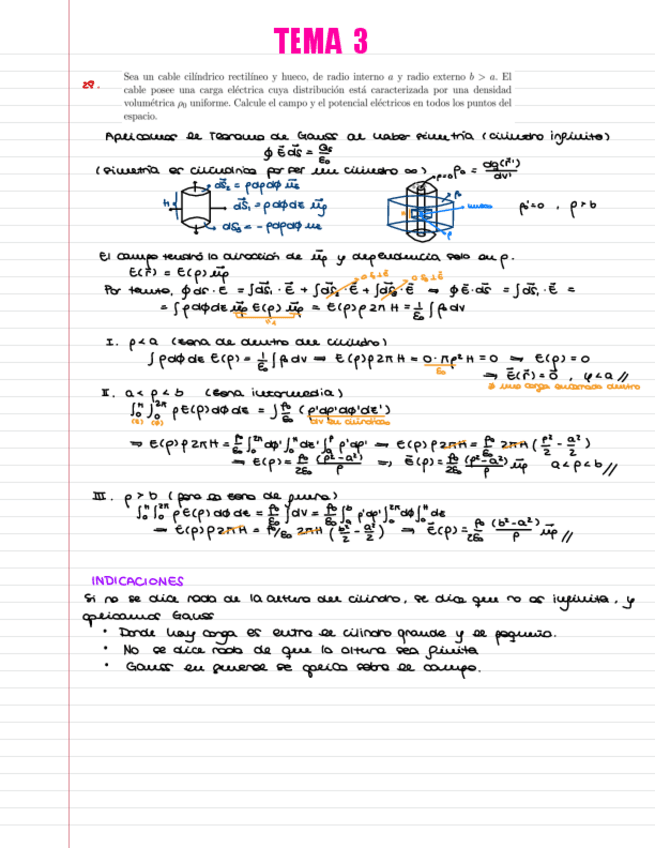 TEMA 3
29.
Sea un cable cilíndrico rectilíneo y hueco, de radio interno a y radio externo b > a. El
cable posee una carga eléctrica cuya distribución está caracterizada por una densidad
volumétrica ρ₀ uniforme. Calcule el campo y el potencial eléctricos en todos los puntos del
espacio.
Aplicamos el Teorema de Gauss al haber simetría (cilindro infinito)
∮ E⃗ ds⃗ = Q / ε₀
(simetría es cilíndrica por ser un cilindro ∞)
ρ=0 ρ₀ = dq(r⃗') / dv'
h
ds⃗₂ = ρdρdφ u⃗z
ds⃗₁ = ρdφdz u⃗ρ
ds⃗₃ = -ρdρdφ uz
, ρ > b
El campo tendrá la dirección de u⃗ρ y dependencia solo en ρ.
E(r⃗) = E(ρ) u⃗ρ
Por tanto, ∮ ds⃗ · E⃗ = ∫ds⃗₁ · E⃗ + ∫ds⃗₂ · E⃗ + ∫ds⃗₃ · E⃗ ⇒ ∮ E⃗ · ds⃗ = ∫ds⃗₁ · E⃗ =
= ∫ρdφdz u⃗ρ E(ρ) u⃗ρ = E(ρ) ρ 2π H = 1/ε₀ ∫ρ₀ dv
I. ρ < a (zona de dentro del cilindro)
∫ρdφdz E(ρ) = 1/ε₀ ∫ρ₀ dv ⇒ E(ρ) ρ 2π H = 0 · πρ² H / ε₀ = 0 ⇒ E(ρ) = 0
⇒ E⃗(r⃗) = 0⃗ , ρ < a //
carga encerrada dentro
II. a < ρ < b (zona intermedia)
∫₀ᴴ ∫₀²π ρ E(ρ) dφ dz = ∫ ρ₀/ε₀ (ρ'dρ'dφ'dz')
(z) (φ) dv en cilíndricas
⇒ E(ρ) ρ 2π H = ρ₀/ε₀ ∫₀²π dφ' ∫₀ᴴ dz' ∫ₐρ ρ'dρ' ⇒ E(ρ) ρ 2π H = ρ₀/ε₀ 2π H (ρ²/2 - a²/2)
⇒ E(ρ) = ρ₀/2ε₀ (ρ² - a²)/ρ ⇒ E⃗(ρ) = ρ₀/2ε₀ (ρ² - a²)/ρ u⃗ρ a < ρ < b //
III. ρ > b (para la zona de fuera)
∫₀ᴴ ∫₀²π ρ E(ρ) dφ dz = ρ₀/ε₀ ∫dv = ρ₀/ε₀ ∫ₐᵇ ρ'dρ' ∫₀²π dφ ∫₀ᴴ dz
⇒ E(ρ) ρ 2π H = ρ₀/ε₀ 2π H (b²/2 - a²/2) ⇒ E⃗(ρ) = ρ₀/2ε₀ (b² - a²)/ρ u⃗ρ //
INDICACIONES
Si no se dice nada de la altura del cilindro, se dice que es infinita, y
aplicamos Gauss
• Donde hay carga es entre el cilindro grande y el pequeño.
• No se dice nada de que la altura sea finita
• Gauss en general se aplica sobre el campo.